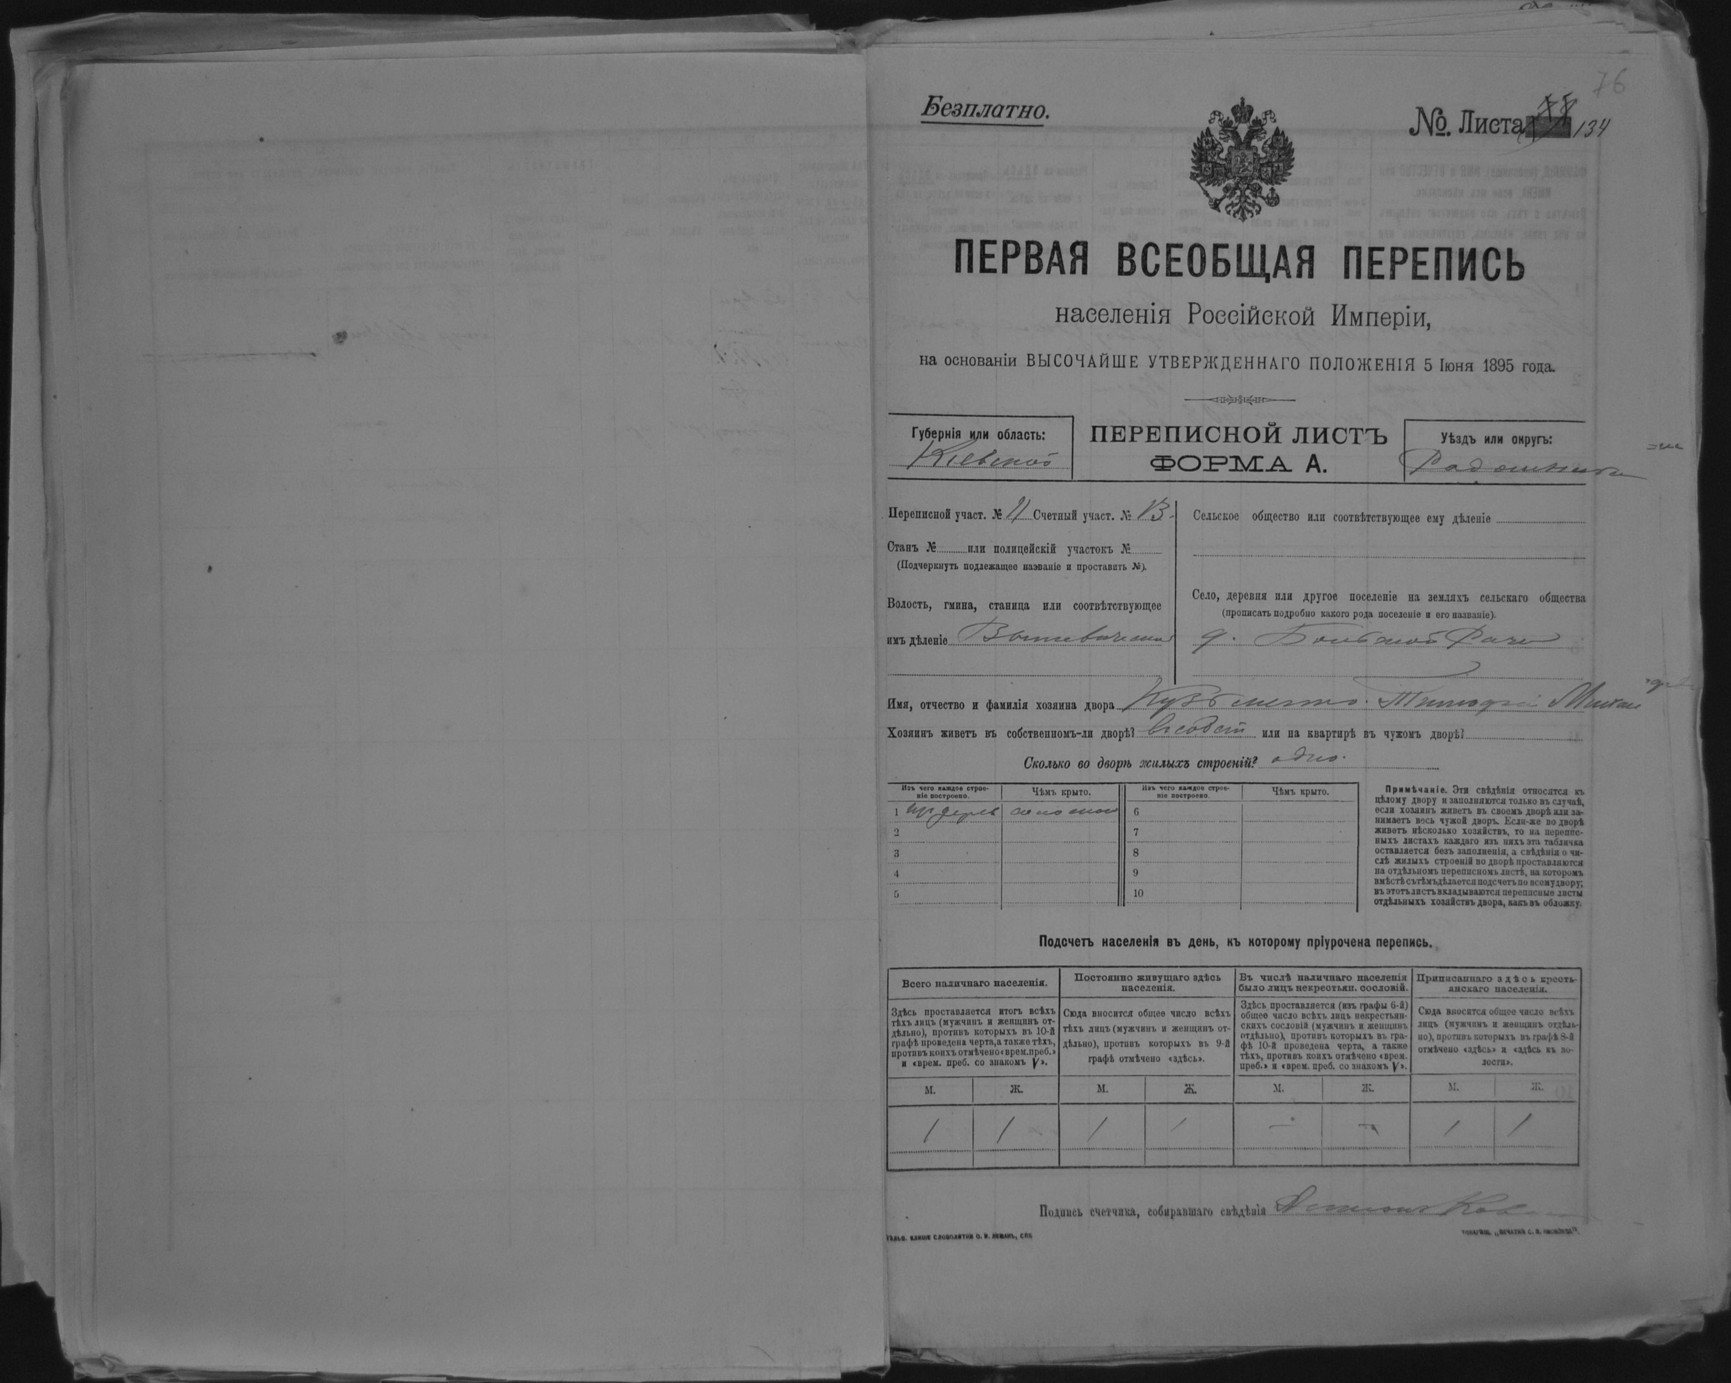 76
Безплатно.
№. Листа 134
ПЕРВАЯ ВСЕОБЩАЯ ПЕРЕПИСЬ
населенія Россійской Имперіи,
на основаніи ВЫСОЧАЙШЕ УТВЕРЖДЕННАГО ПОЛОЖЕНІЯ 5 Іюня 1895 года.
Губернія или область:
Кіевской
ПЕРЕПИСНОЙ ЛИСТЪ
ФОРМА А.
Уѣздъ или округъ:
Переписной участ. № Счетный участ. №
Станъ № или полицейскій участокъ №
(Подчеркнуть подлежащее названіе и проставить №).
Волость, гмина, станица или соотвѣтствующее
имъ дѣленіе
Сельское общество или соотвѣтствующее ему дѣленіе
Село, деревня или другое поселеніе на земляхъ сельскаго общества
(прописать подробно какого рода поселеніе и его названіе).
д.
Имя, отчество и фамилія хозяина двора Кузьменко Тимофей
Хозяинъ живетъ въ собственномъ-ли дворѣ? или на квартирѣ въ чужомъ дворѣ?
Сколько во дворѣ жилыхъ строеній? одно.
Изъ чего каждое строе-
ніе построено.
Чѣмъ крыто.
Изъ чего каждое строе-
ніе построено.
Чѣмъ крыто.
1 6
2 7
3 8
4 9
5 10
Примѣчаніе. Эти свѣдѣнія относятся къ
цѣлому двору и заполняются только въ случаѣ,
если хозяинъ живетъ въ своемъ дворѣ или за-
нимаетъ весь чужой дворъ. Если-же во дворѣ
живетъ нѣсколько хозяйствъ, то на перепис-
ныхъ листахъ каждаго изъ нихъ эта табличка
оставляется безъ заполненія, а свѣдѣнія о чи-
слѣ жилыхъ строеній во дворѣ проставляются
на отдѣльномъ переписномъ листѣ, на которомъ
вмѣстѣ съ тѣмъ дѣлается подсчетъ по всему двору;
въ этотъ листъ вкладываются переписные листы
отдѣльныхъ хозяйствъ двора, какъ въ обложку.
Подсчетъ населенія въ день, къ которому пріурочена перепись.
Всего наличнаго населенія.
Здѣсь проставляется итогъ всѣхъ
тѣхъ лицъ (мужчинъ и женщинъ от-
дѣльно), противъ которыхъ въ 10-й
графѣ проведена черта, а также тѣхъ,
противъ коихъ отмѣчено «врем. преб.»
и «врем. преб. со знакомъ V».
Постоянно живущаго здѣсь
населенія.
Сюда вносится общее число всѣхъ
тѣхъ лицъ (мужчинъ и женщинъ от-
дѣльно), противъ которыхъ въ 9-й
графѣ отмѣчено «здѣсь».
Въ числѣ наличнаго населенія
было лицъ некрестьян. сословій.
Здѣсь проставляется (изъ графы 6-й)
общее число всѣхъ лицъ некрестьян-
скихъ сословій (мужчинъ и женщинъ
отдѣльно), противъ которыхъ въ гра-
фѣ 10-й проведена черта, а также
тѣхъ, противъ коихъ отмѣчено «врем.
преб.» и «врем. преб. со знакомъ V».
Приписаннаго здѣсь кресть-
янскаго населенія.
Сюда вносится общее число всѣхъ
лицъ (мужчинъ и женщинъ отдѣль-
но), противъ которыхъ въ графѣ 8-й
отмѣчено «здѣсь» и «здѣсь въ во-
лости».
М. Ж. М. Ж. М. Ж. М. Ж.
1 1 1 1 - - 1 1
Подпись счетчика, собиравшаго свѣдѣнія